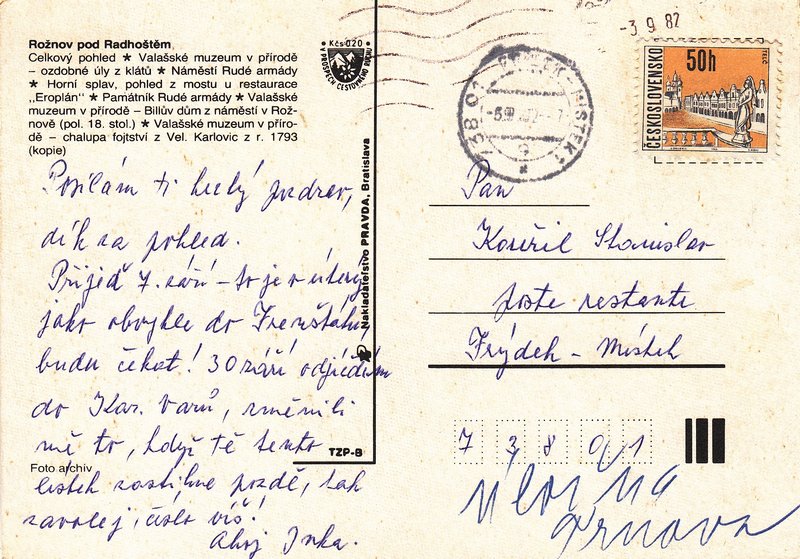 Rožnov pod Radhoštěm
Celkový pohled ★ Valašské muzeum v přírodě
– ozdobné úly z klátů ★ Náměstí Rudé armády
★ Horní splav, pohled z mostu u restaurace
„Eroplán" ★ Památník Rudé armády ★ Valašské
muzeum v přírodě – Billův dům z náměstí v Rož-
nově (pol. 18. stol.) ★ Valašské muzeum v příro-
dě – chalupa fojtství z Vel. Karlovic z r. 1793
(kopie)
Kčs 0,20
V PROSPĚCH CESTOVNÍHO RUCHU
Posílám ti hezký pozdrav,
dík za pohled.
Přijeď 7. září – to je v úterý
jako obvykle do Frenštátu,
budu čekat! 30 září odjíždím
do Kar. Varů, změnili
mě to, když tě tento
lístek zastihne pozdě, tak
zavolej, číslo víš!
Ahoj Inka.
Foto archiv
Nakladatelstvo PRAVDA, Bratislava
TZP-8
-3.9.82
738 01
MÍSTEK 1
ČESKOSLOVENSKO
50h
TELČ
Pan
Stanislav
poste restante
Frýdek – Místek
7 3 8 0 1